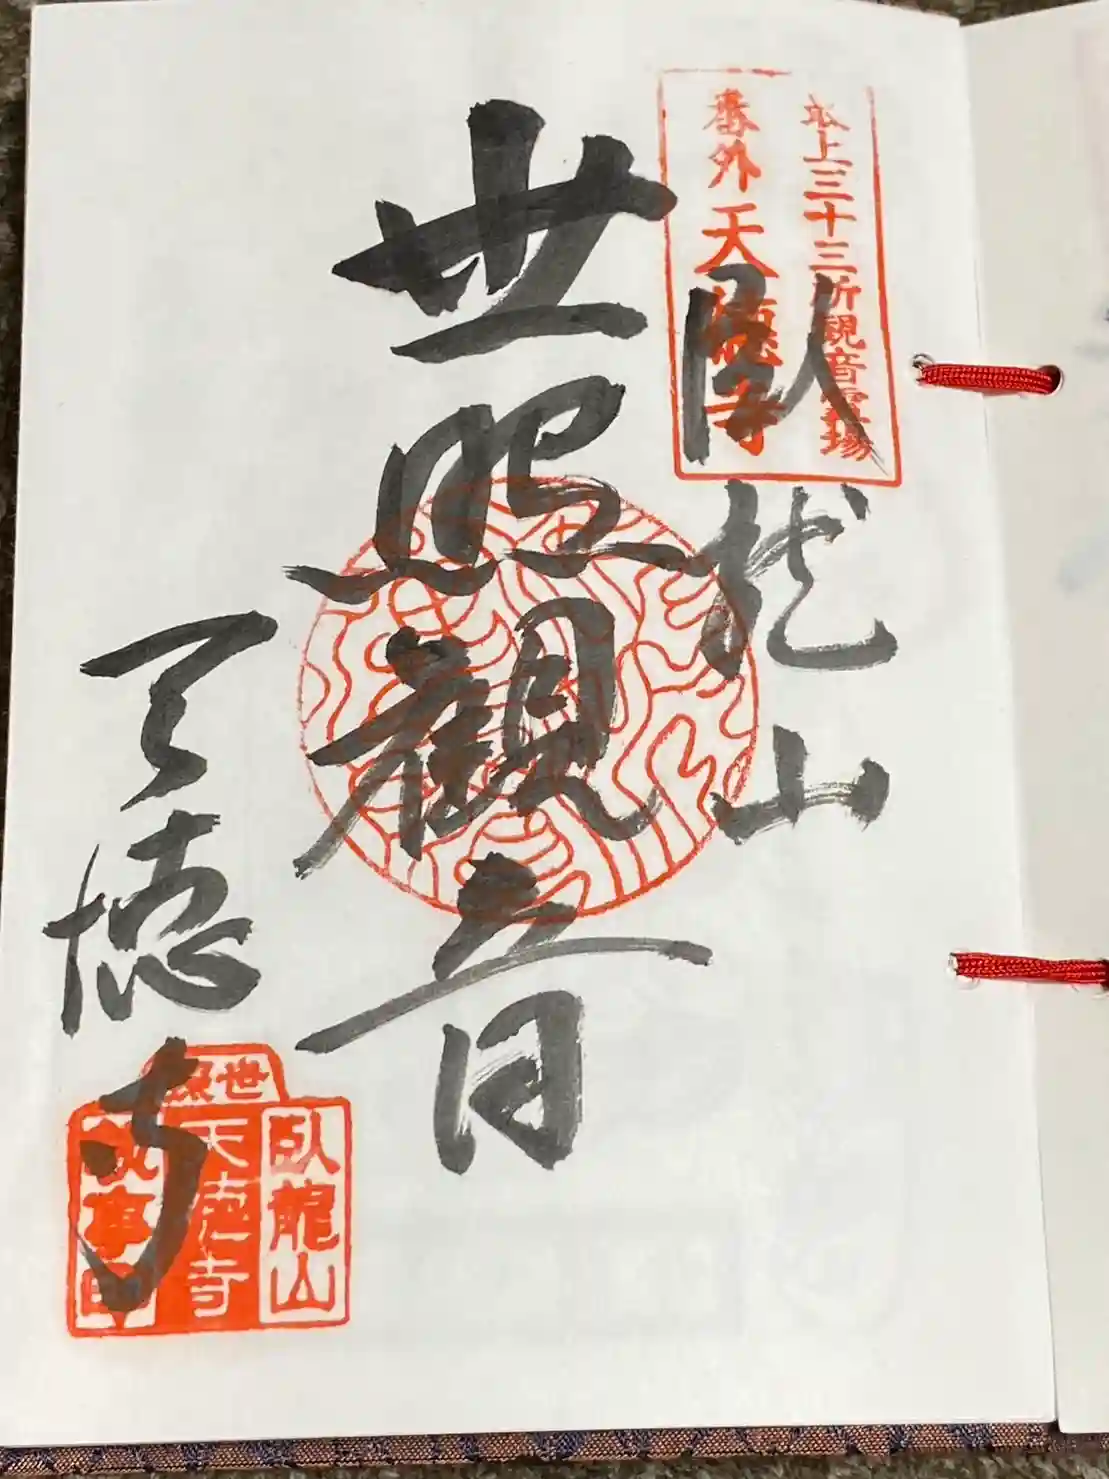 最上三十三所観音霊場
番外 天徳寺
臥龍山
世照観音
天徳寺
世照
臥龍山
天徳寺
執事印